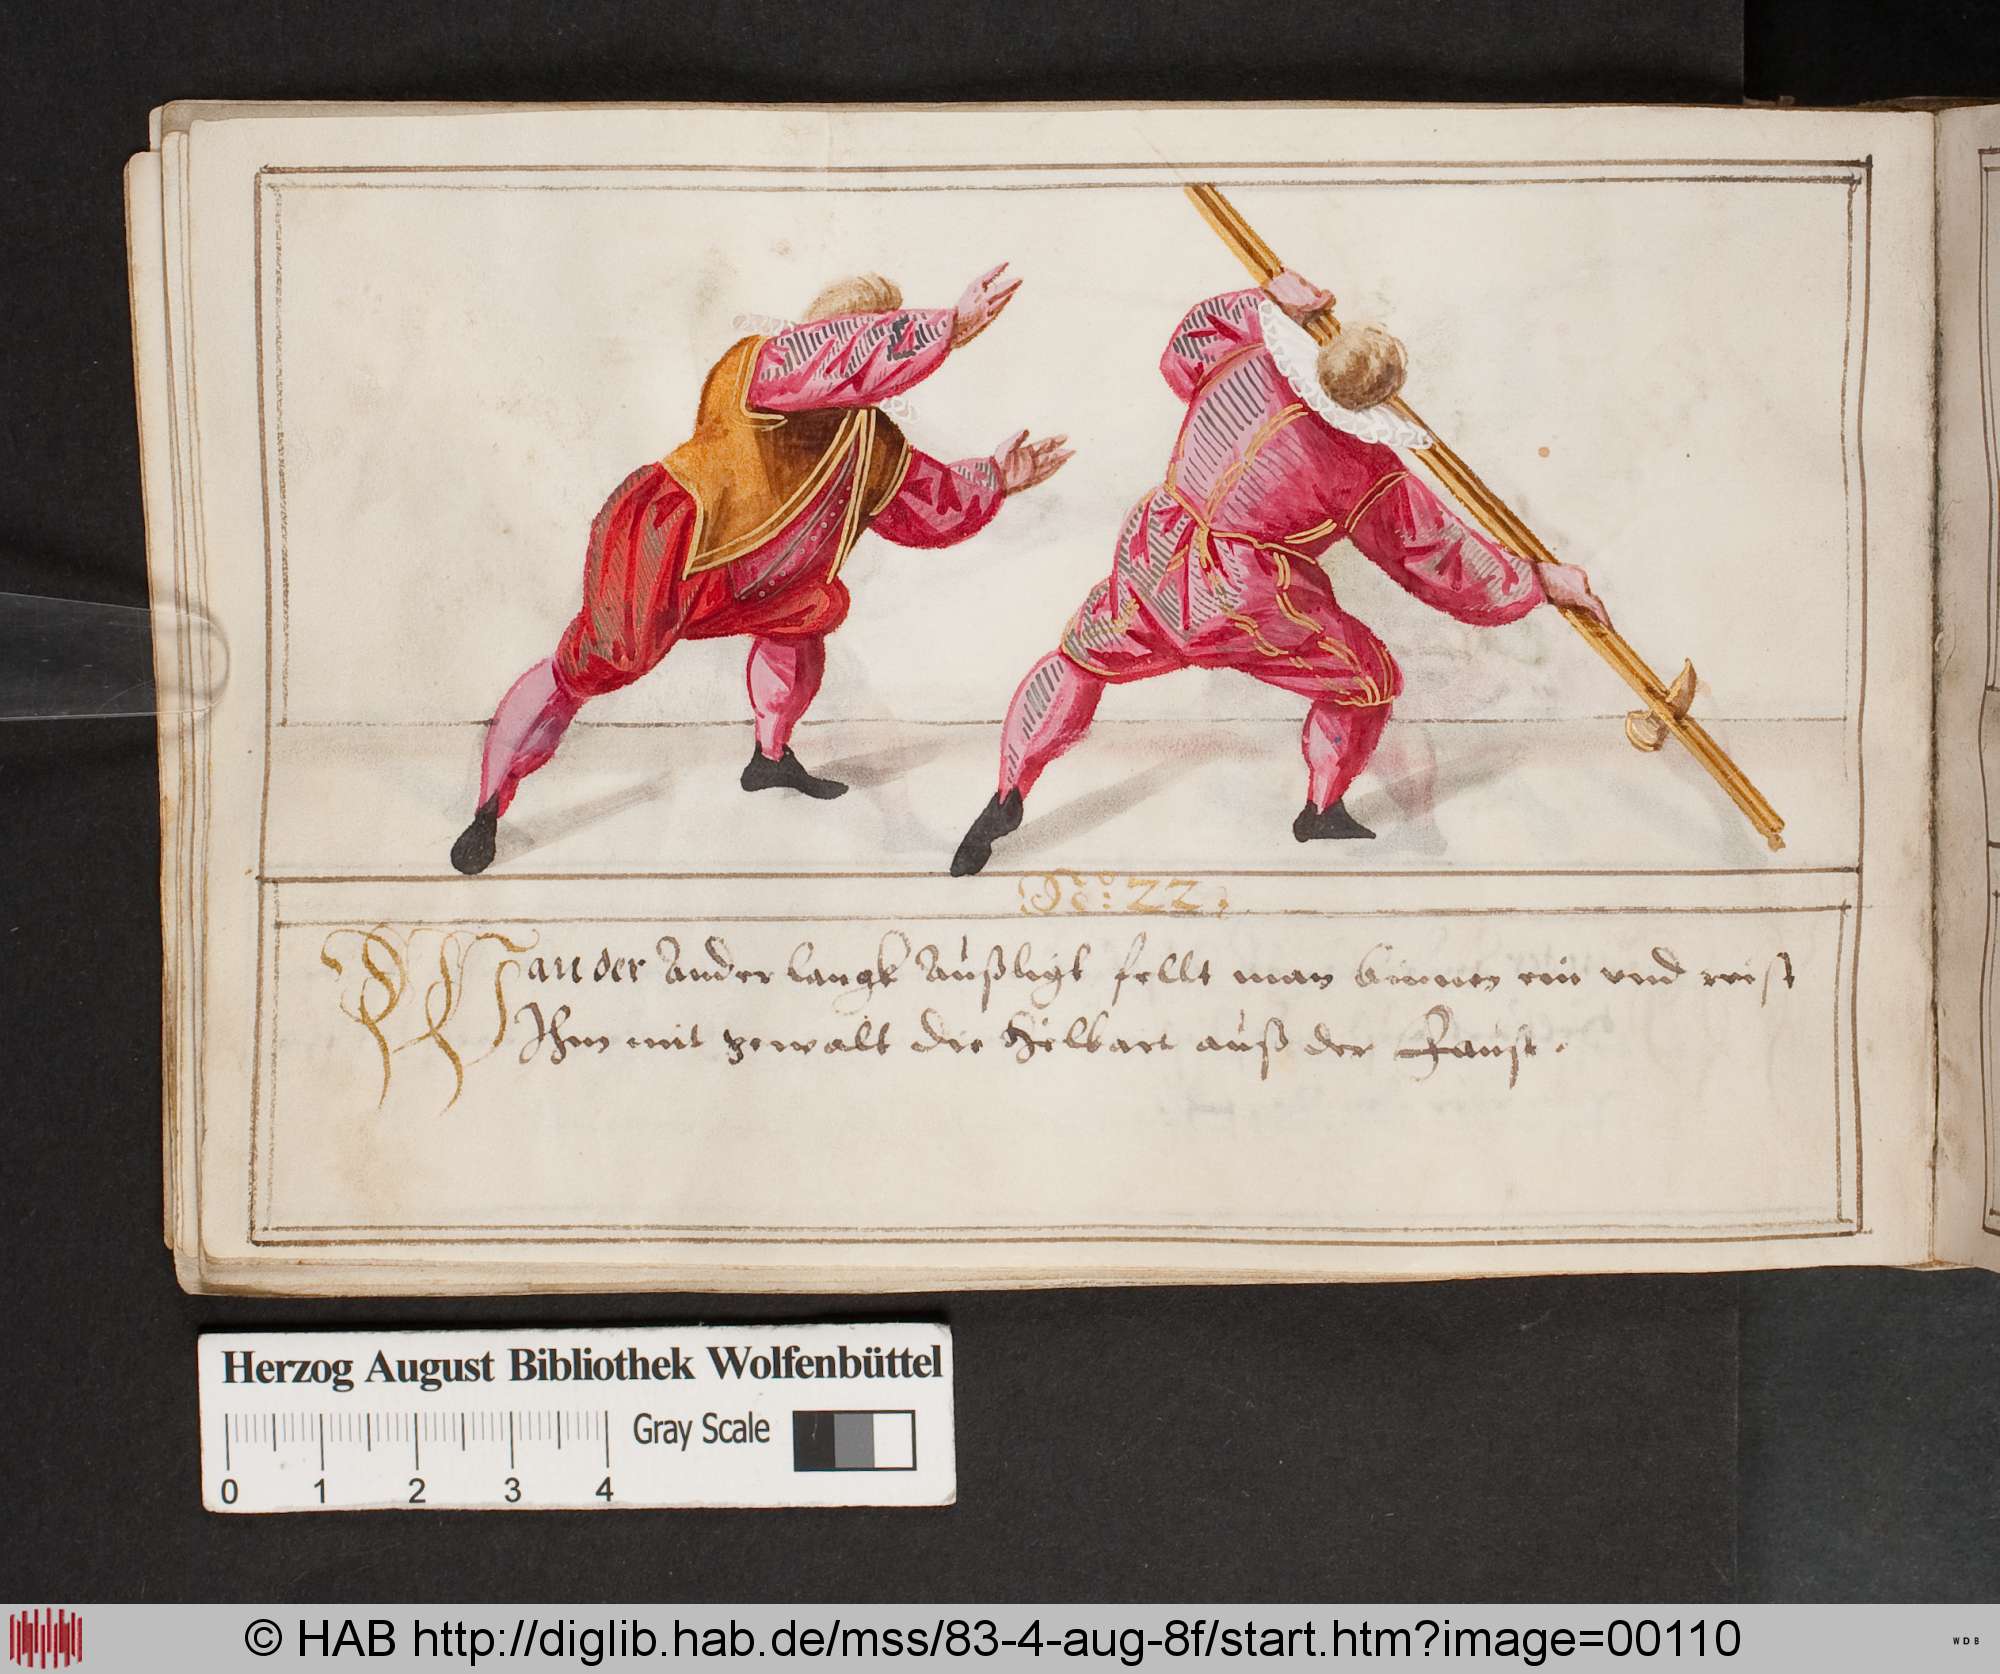 N.º: 22.
Wan der Ander langk Außligt fellt man binnen ein vnd reist
Ihm mit gewalt die Helbart auß der Faust.
Herzog August Bibliothek Wolfenbüttel
0 1 2 3 4 Gray Scale
© HAB http://diglib.hab.de/mss/83-4-aug-8f/start.htm?image=00110
WDB